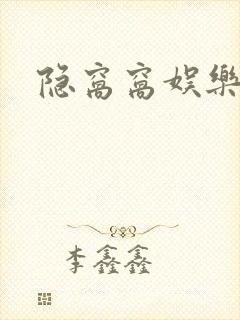 隐窝窝娱樂
李鑫鑫